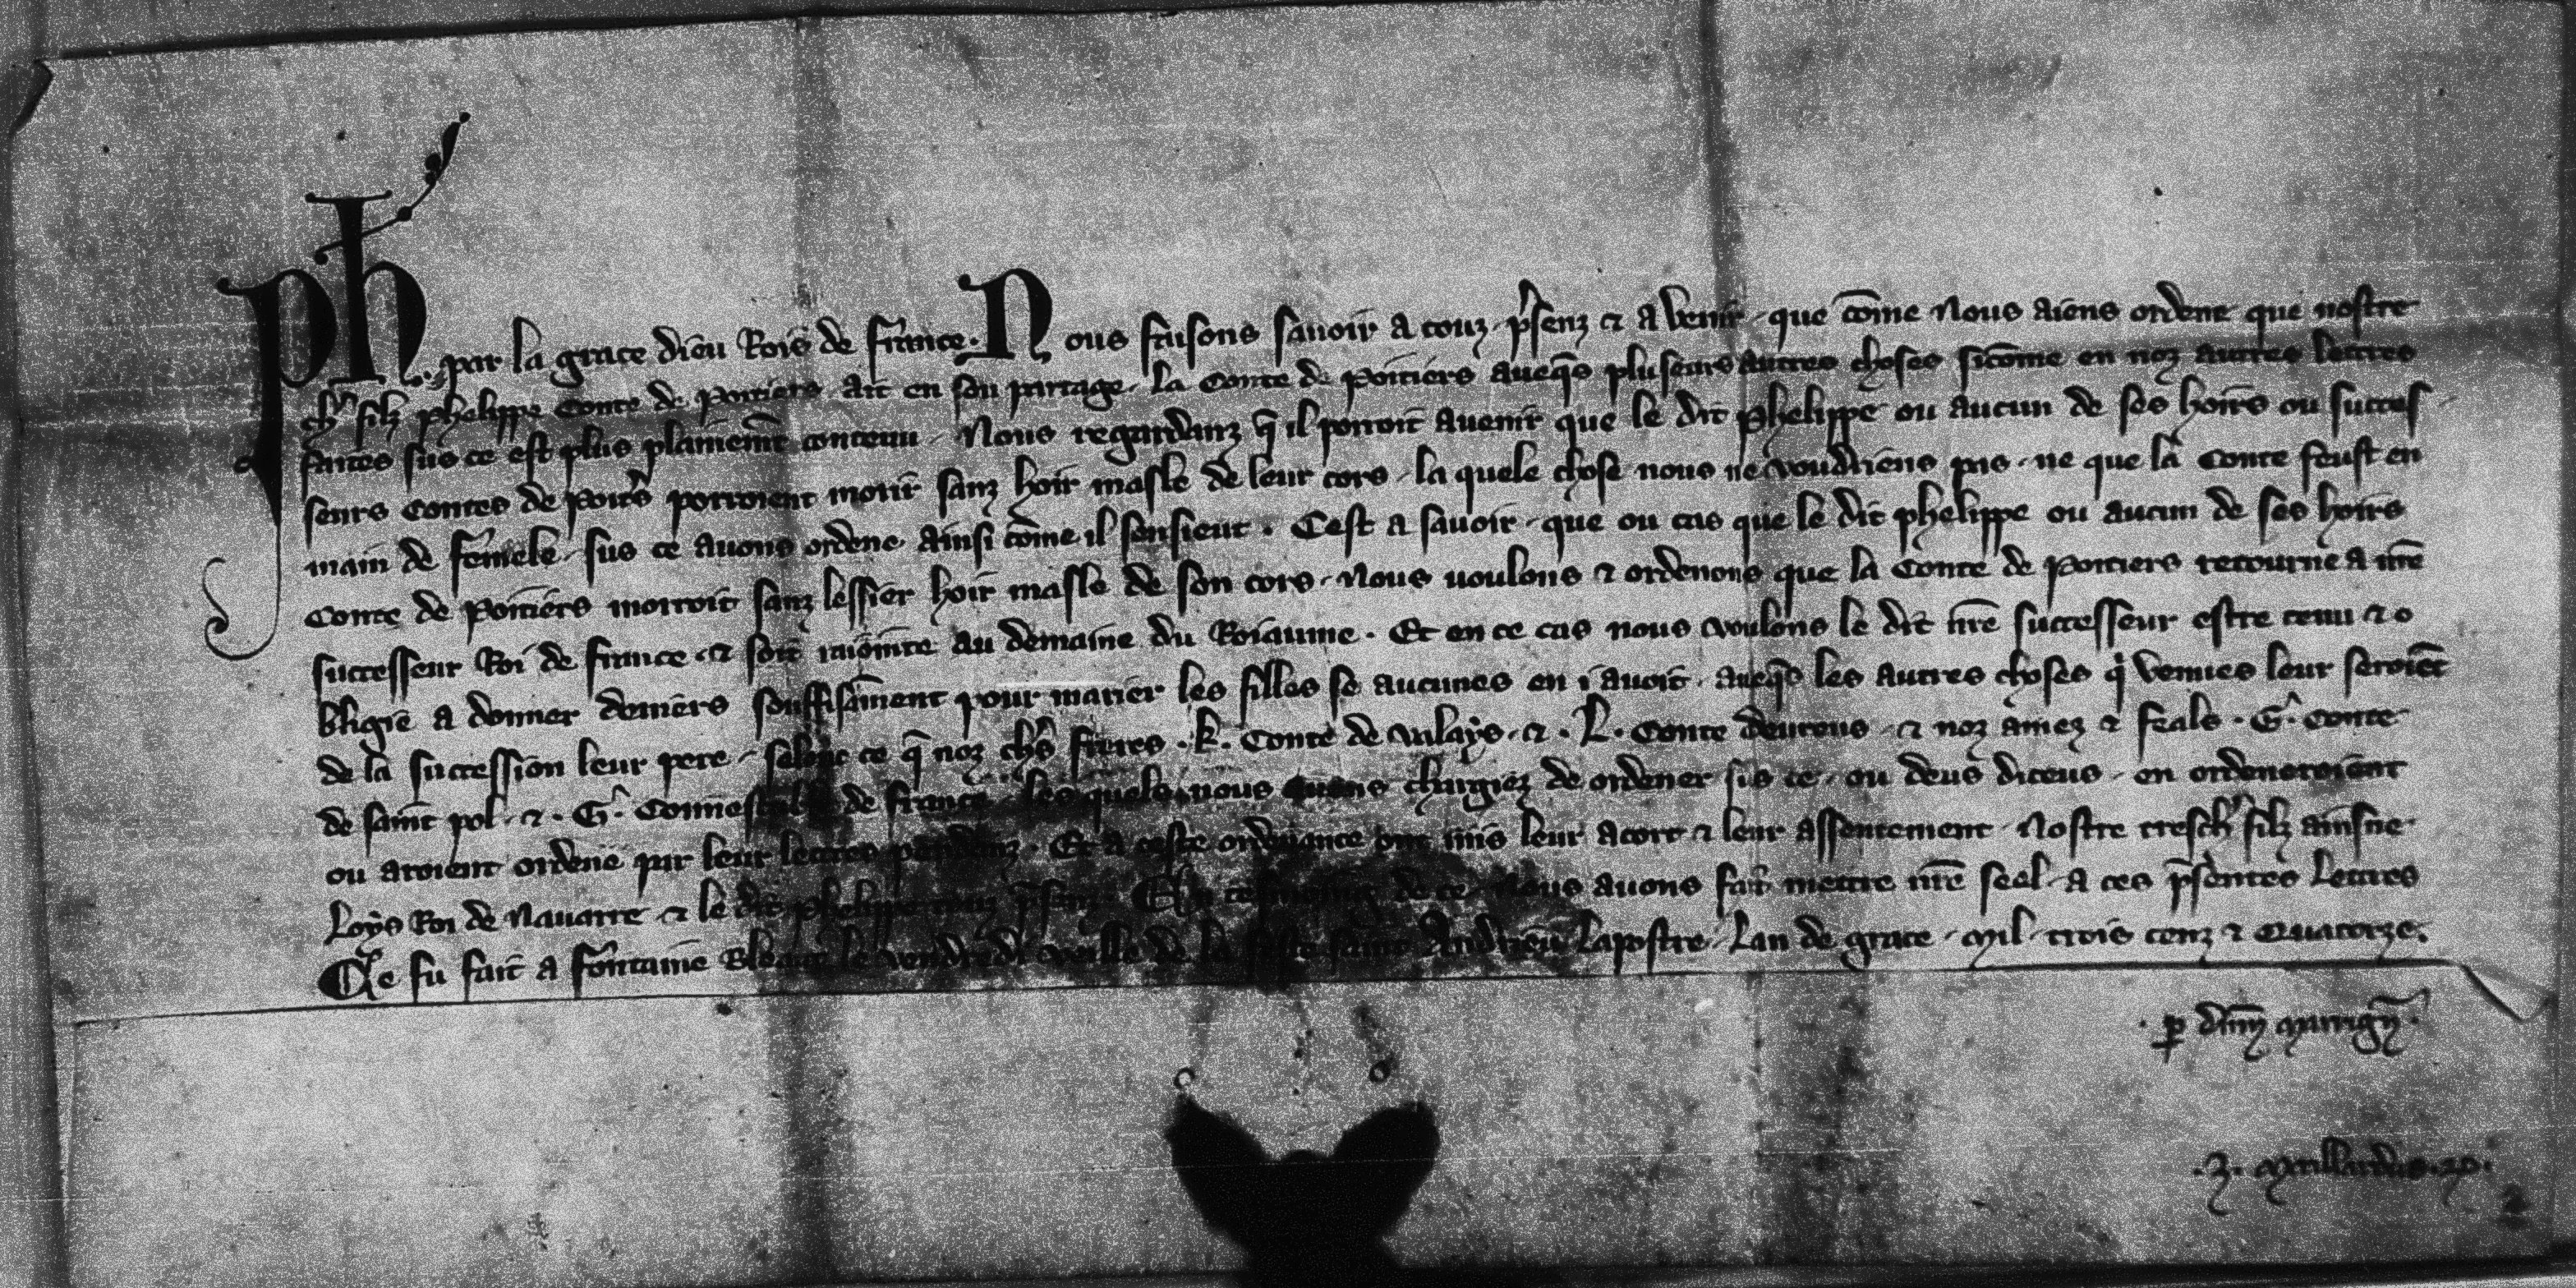 Ph. par la grace dieu Rois de France. Nous faisons savoir a touz p̃senz ⁊ a venir que cõme Nous aiens ordene que nostre
ch̓r filz Phelippe Conte de Poitiers ait en son partage la Conte de Poitiers aueq̃s pluseurs autres choses sicõme en noz autres lettres
faites sus ce est plus plainem̃t contenu. Nous regardanz q̃ il porroit auenir que le dit Phelippe ou aucun de ses hoirs ou succes
seurs Contes de Poit̓s porroient morir sanz hoir masle de leur cors la quele chose nous ne voudriens pas ne que la Conte feust en
main de femele sus ce auons ordene ainsi cõme il sensieut. Cest a sauoir que ou cas que le dit Phelippe ou aucun de ses hoirs
Conte de Poitiers morroit sanz lessier hoir masle de son cors Nous uoulons ⁊ ordenons que la Conte de Poitiers retourne a nr̃e
successeur Roi de France ⁊ soit raiointe au demaine du Roiaume. Et en ce cas nous voulons le dit nr̃e successeur estre tenu ⁊ o
bligie a donner deniers souffisãment pour marier les filles se aucunes en i auoit aueq̃s les autres choses qͥ venues leur seroiẽt
de la succession leur pere selonc ce q̃ noz ch̓s freres .K. Conte de Valays ⁊ .L. Conte deureus ⁊ noz amez ⁊ feals .G. Conte
de saint Pol ⁊ .G. Connestable de France les quels nous auons chargiez de ordener sus ce ou deus diceus en ordeneroient
ou aroient ordene par leur lettres pendanz. Et a ceste ordenance ont mis leur acort ⁊ leur assentement Nostre tresch̓r filz ainsne
Loÿs Roi de Nauarre ⁊ le dit Phelippe p̃senz. En tesmoing de ce Nous auons fait mettre nr̃e seel a ces p̃sentes Lettres
Ce fu fait a Fontaine Bleaut le vendredi veille de la feste saint Andrieu Lapostre Lan de grace Mil trois cenz ⁊ Quatorze.
. ꝑ dñm Marrigñ.